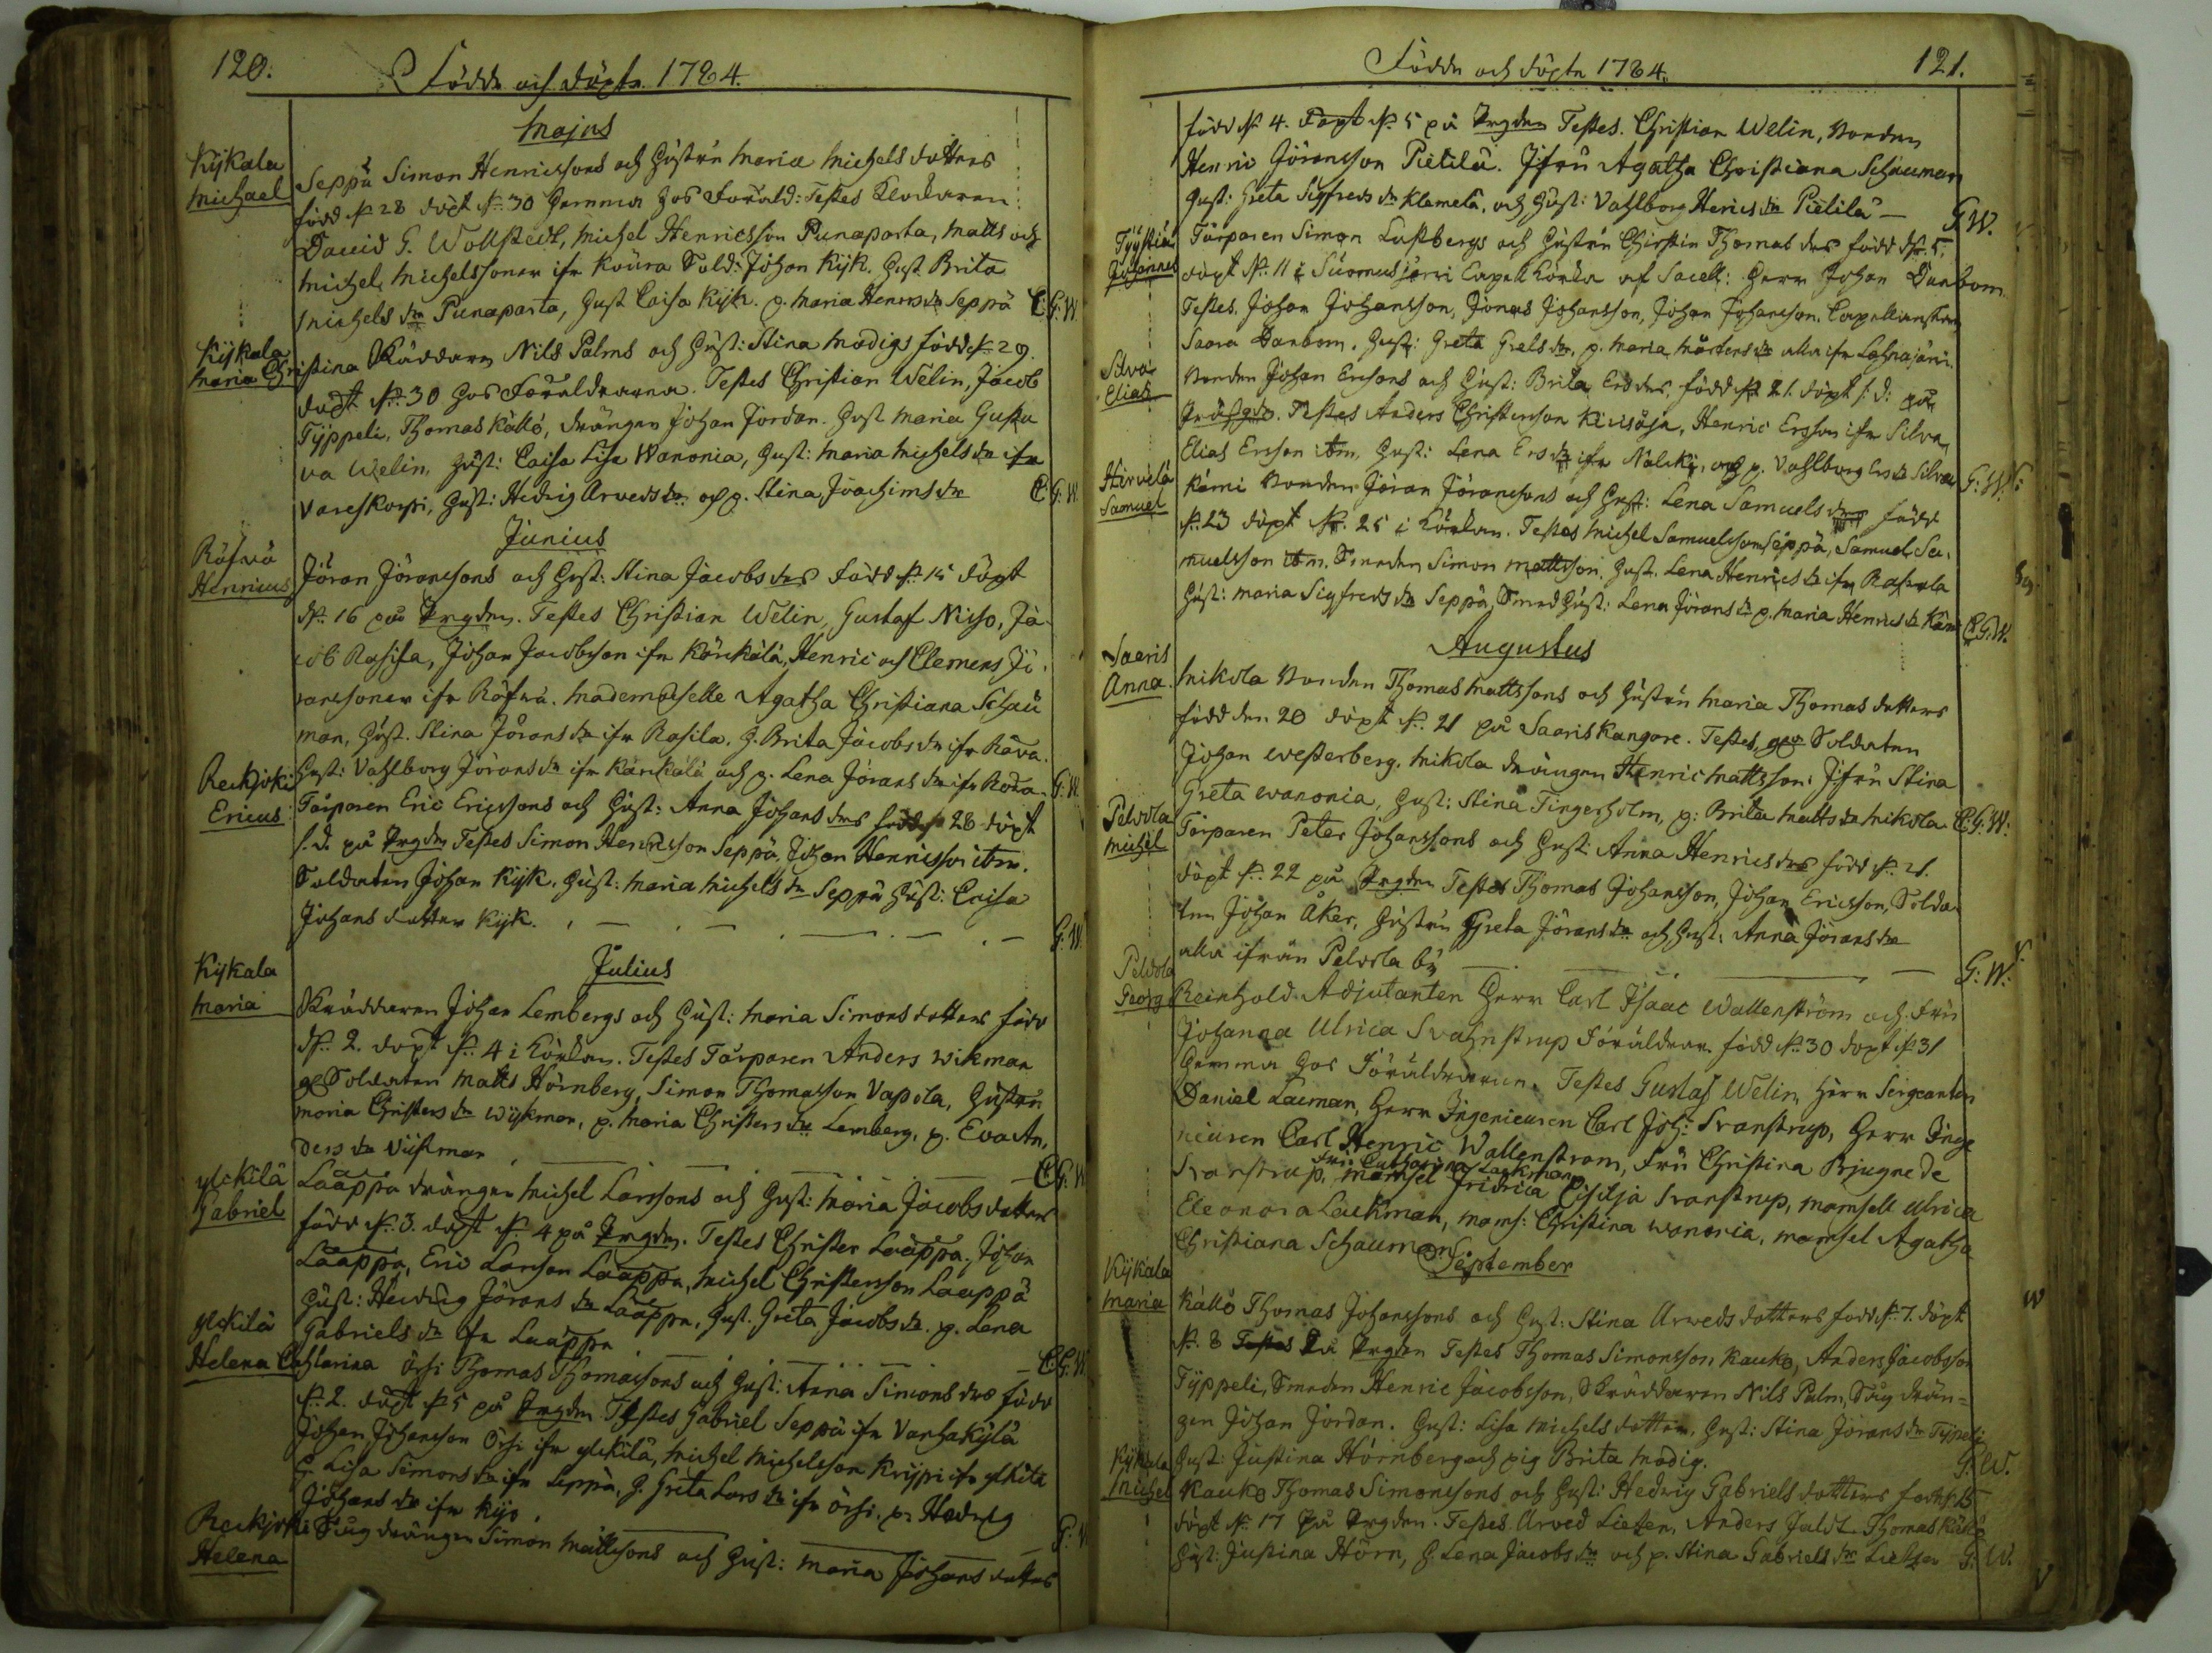 120.
Födde och döpte 1784.
Majus
Kijkala
Michael
Seppä Simon Henricssons och Hustru Maria Michelsdotters
född d. 28 döpt d. 30 hemma hos Föräld: Testes Klockaren
David G. Wollstedt, Michel Henricsson Punaparta, Matts och
Michel Michelssoner ifr Koura Sold: Johan Kijk. Hust Brita
Michels dr Punaparta, Hust Caisa Kijk. p. Maria Henrics dr Seppä C. G. W.
Kijkala
Maria Christina Skräddaren Nils Palms och Hust: Stina Modigs född d. 29.
döpt d. 30 hos Föräldrarna. Testes Christian Welin, Jacob
Typpeli, Thomas Källö, drängen Johan Jordan. Hust Maria Gusta
va Welin, Hust: Caisa Lisa Wanonia, Hust: Maria Michels dr ifr
Vareskorpi, Hust: Hedvig Arveds dr och p. Stina Joachims dr C. G. W.
Junius
Röfvä
Henricus
Jöran Jöranssons och Hust: Stina Jacobs drs född d. 15 döpt
d. 16 på Prgdn. Testes Christian Welin, Gustaf Niso, Ja
cob Rasila, Johan Jacobsson ifr Kärckälä, Henric och Clemens Jö
ranssoner ifr Röfvä. Mademoiselle Agatha Christiana Schau
man, Hust. Stina Jörans dr ifr Rasila. H. Brita Jacobs dr ifr Röva.
Hust: Vahlborg Jörans dr ifr Kärckälä och p. Lena Jörans dr ifr Röva. G. W.
Reckjoki
Ericus
Torparen Eric Ericssons och Hust: Anna Johans drs född d. 28 döpt
s. d. på Prgdn Testes Simon Henricsson Seppä, Johan Henricsson ibm.
Soldaten Johan Kijk. Hust: Maria Michels dr Seppä Hust: Caisa
Johans dotter Kijk. G. W.
Julius
Kijkala
Maria
Skräddaren Johan Lembergs och Hust: Maria Simons dotters född
d. 2. döpt d. 4 i Körkan. Testes Torparen Anders Wikman
Soldaten Matts Hörnberg, Simon Thomasson Vapola, Hustru
Maria Christers dr Wykman, p. Maria Christers dr Lemberg, p. Eva An,
ders dr Viikman C. G. W.
Ylckilä
Gabriel
Laappa drängen Michel Larssons och Hust: Maria Jacobs dotters
född d. 3. döpt d. 4 på Prgdn. Testes Christer Laappa, Johan
Laappa, Eric Larsson Laappa, Michel Christersson Laappa
Hust: Hedvig Jörans dr Laappa, Hust. Greta Jacobs dr. p. Lena
Gabriels dr ifr Laappa C. G. W.
Ylckilä
Helena Catharina Örsi Thomas Thomassons och Hust: Anna Simons drs född
d. 2. döpt d. 5 på Prgdn Testes Gabriel Seppä ifr Vanhakylä
Johan Johansson Örsi ifr Ylckilä, Michel Michelsson Krijpi ifr Ylckilä
H. Lisa Simons dr ifr Seppä, H. Greta Lars dr ifr Örsi. p. Hedvig
Johans dr ifr Kijo. G. W.
Reckjoki
Helena
Såg drängen Simon Mattssons och Hust: Maria Johans dotters
Födde och döpte 1784.
121.
född d. 4. döpt d. 5 på Prgdn Testes. Christian Welin, Bonden
Henric Göransson Pietilä. Jfru Agatha Christiana Schauman
Hust: Greta Sigfreds dr Klemelä, och Hust: Vahlborg Henrics dr Pietilä G. W.
Johannes
Torparen Simon Lustbergs och Hustru Christin Thomas drs född d. 5.
döpt d. 11 i Suomusjärvi Capell körka af Sacell: Herr Johan Danbom
Testes. Johan Johansson, Jonas Johansson, Johan Johansson. Capellanskan
Saara Danbom. Hust: Greta Grels dr, p. Maria Mårtens dr alla ifr Lahnajärvi.
Silva
Elias
Bonden Johan Ersons och Hust: Brita Ers drs, född d. 21. döpt s. d: på
Prästgdn. Testes Anders Christersson Kivisoja, Henric Ersson ifr Silva,
Elias Ersson ibm, Hust: Lena Ers dr ifr Nälcki, och p. Vahlborg Ers dr Silva G: W.
Hirvelä
Samuel
Kärni Bonden Jöran Jöranssons och Hust: Lena Samuels drs född
d. 23 döpt d. 25 i Körkan. Testes Michel Samuelsson Seppä, Samuel Sa,
muelsson ibm. Smeden Simon Mattsson. Hust. Lena Henrics dr ifr Rassala
Hust: Maria Sigfreds dr Seppä, Smed Hust: Lena Jörans dr p. Maria Henrics dr Kärni C. G. W.
Augustus
Saaris
Anna.
Mikola Bonden Thomas Mattssons och Hustru Maria Thomas dotters
född den 20 döpt d. 21 på Saaris Kangare. Testes Soldaten
Johan Westerberg. Mikola drängen Henric Mattsson. Jfru Stina
Greta Wanonia, Hust: Stina Tingerholm, p: Brita Matts dr Mikola C: G: W:
Pelvola
Michel
Torparen Peter Johanssons och Hust: Anna Henrics drs född d. 21.
döpt d. 22 på Prgdn Testes Thomas Johansson, Johan Ericsson, Solda
ten Johan Åker, Hustru Greta Jörans dr och Hust: Anna Jörans dr
alla ifrån Pelvola by G: W:
Pelvola
Georg
Reinhold. Adjutanten Herr Carl Isaac Wallenström och Fru
Johanna Ulrica Svahnstrup Föräldrar. född d. 30 döpt d. 31
hemma hos Föräldrarna. Testes Gustaf Welin, Herr Sergeanten
Daniel Lacman, Herr Ingenieuren Carl Joh: Svanstrup, Herr Inge
nieuren Carl Henric Wallenstrom, Fru Christina Brjugnede
Svanstrup, Fru Catharina Lackman, Mamsel Fridrica Cisilja Svanstrup, Mamsell Ulrica
Eleonora Lackman, Mams: Christina Wanonia, Mamsel Agatha
Christiana Schauman.
September
Kijkala
Maria
Källö Thomas Johanssons och Hust: Stina Arweds dotters född d. 7. döpt
d. 8 På Prgdn Testes Thomas Simonsson Kauko, Anders Jacobsson
Typpeli, Smeden Henric Jacobsson, Skräddaren Nils Palm, Såg drän=
gen Johan Jordan. Hust: Lisa Michels dotter. Hust: Stina Jörans dr Typpeli
Hust: Justina Hörnberg och pig Brita Modig. G. W.
Kijkala
Michel
Kauko Thomas Simonssons och Hust: Hedvig Gabriels dotters född d. 15
döpt d. 17 På Prgdn. Testes Arved Lietzen, Anders Jaldt. Thomas Källö
Hust: Justina Hörn, H. Lena Jacobs dr och p. Stina Gabriels dr Lietzen G: W.